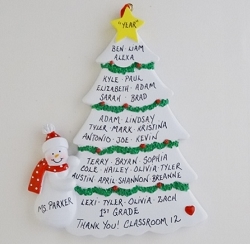 "YEAR"
BEN · LIAM
ALEXA
KYLE · PAUL
ELIZABETH · ADAM
SARAH · BRAD
ADAM · LINDSAY
TYLER · MARK · KRISTINA
ANTONIO · JOE · KEVIN
TERRY · BRYAN SOPHIA
COLE · HAILEY · OLIVIA · TYLER
AUSTIN APRIL SHANNON BREANNE
LEXI · TYLER · OLIVIA · ZACH
1ST GRADE
THANK YOU! CLASSROOM 12
MS. PARKER